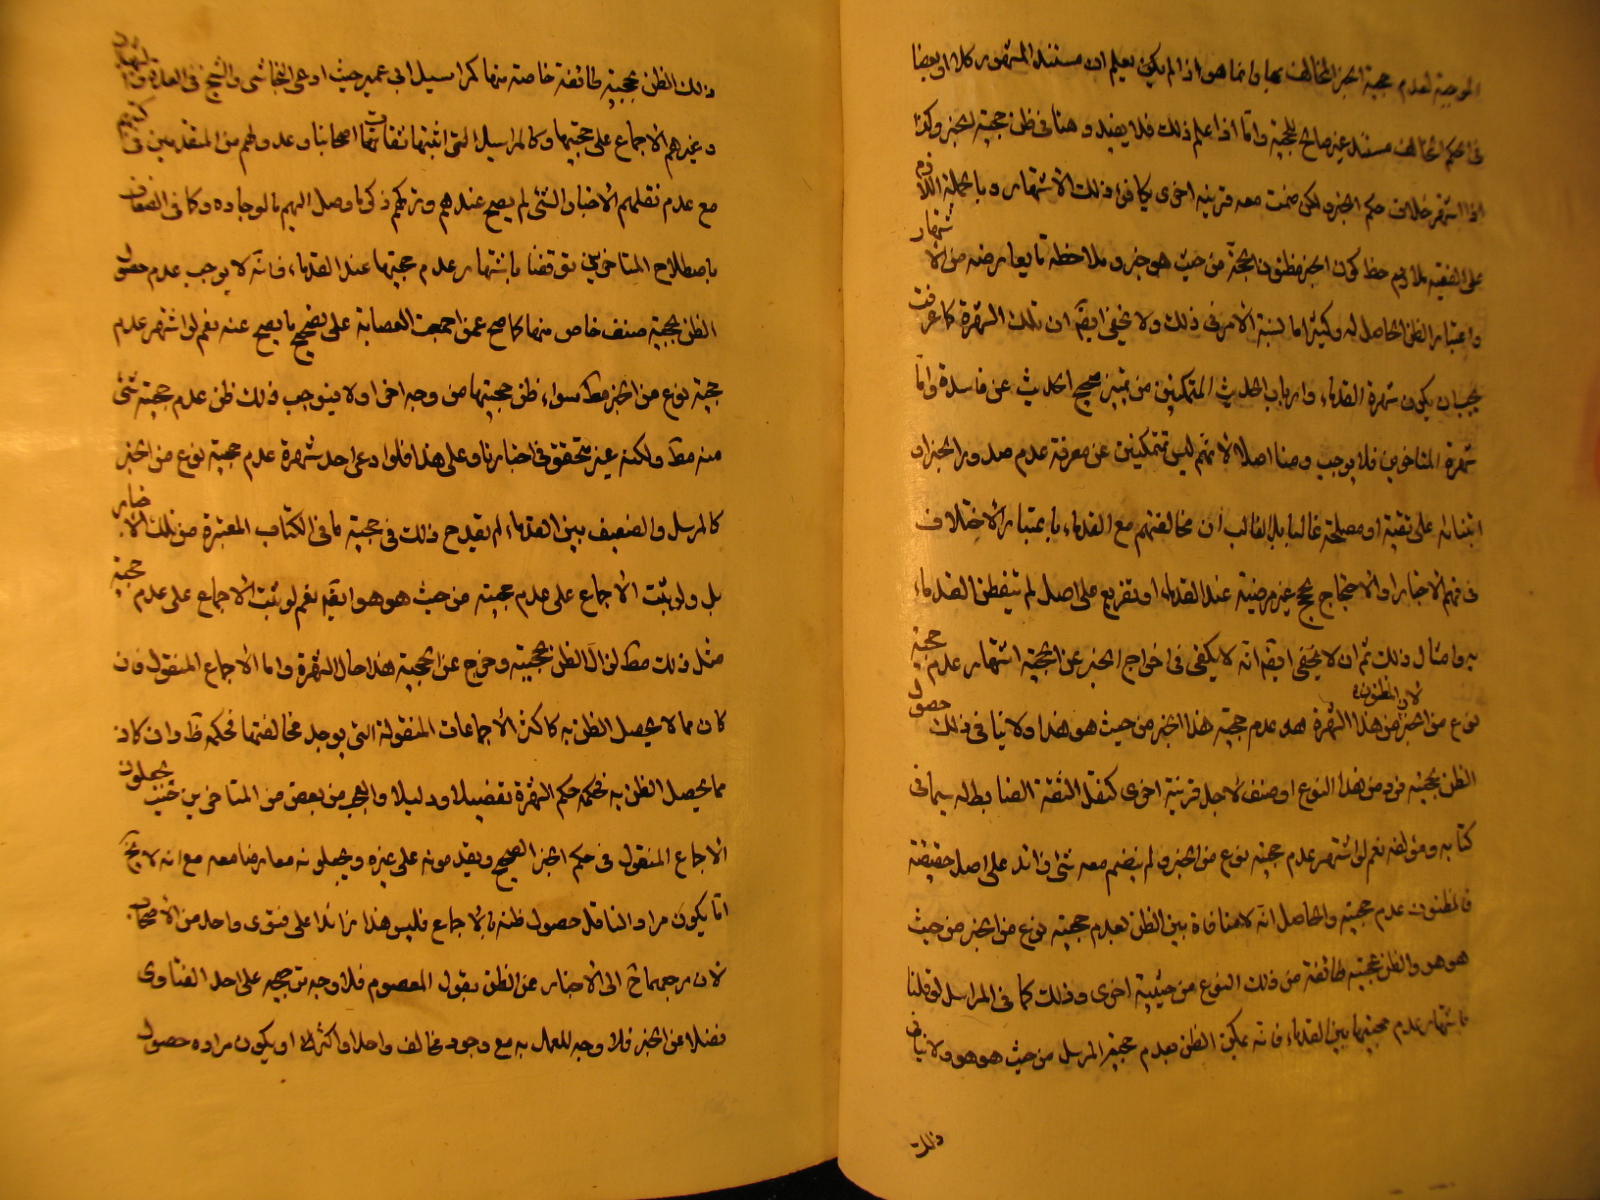 الموجبة لعدم حجية الخبر المخالف لها وانما هو اذا لم يكن يعلم ان مستند المشهور كلا او بعضا
في الحكم المخالف مستند غير صالح للحجية وامّا اذا علم ذلك فلا يفيد وهنا في ظن حجية الخبر وكذا
اذا اشتهر خلاف حكم الخبر ولكن ضمت معه قرينه اخرى يكافئ ذلك الاشتهار وبالجملة اللازم
على الفقيه ملاحظة كون الخبر مظنون الحجّة من حيث هو خبر وملاحظة ما يعارضه من الاشتهار
واعتبار الظن الحاصل له وكثيراما يشتبه الامر في ذلك ولا يخفى ايضا ان تلك الشهرة كما عرفت
يجب ان يكون شهرة القدماء وارباب الحديث المتمكنين من تميز صحيح الحديث عن فاسدة وامّا
شهرة المتاخرين فلا يوجب وهنا اصلا لانهم ليس متمكنين عن معرفة عدم صدور الخبر او
ابتنائه على تقية او مصلحة غالبا بل الغالب ان مخالفتهم مع القدماء باعتبار الاختلاف
في فهم الاخبار او الاحتجاج بحجج غير مرضية عند القدماء او تفريع على اصل لم يتفطن القدماء
به وامثال ذلك ثم ان لا يخفى ايضا انه لا يكفى في اخراج الخبر عن الحجّية اشتهار عدم حجية
نوع من الخبر لان المظنون من هذا الشهرة هو عدم حجية هذا الخبر من حيث هو هذا ولا ينافي ذلك حصول
الظن بحجية فرد من هذا النوع او صنف لاجل قرينة اخرى كنقل الثقة الضابط له سيما في
كتابه ومؤلفه نعم لو اشتهر عدم حجية نوع من الخبر ولم ينضم معه شئ زائد على اصل حقيقته
فالمظنون عدم حجيته والحاصل انّه لا منافاة بين الظن بعدم حجية نوع من الخبر من حيث
هو هو والظن بحجية طائفة من ذلك النوع من حيثية اخرى وذلك كما في المراسيل لو قلنا
باشتهار عدم حجيتها بين القدماء فانه يمكن الظن بعدم حجية المرسل من حيث هو هو ولا ينافي
ذلك
ذلك الظن بحجية طائفة خاصة منها كمراسيل ابي عمير حيث ادعى النجاشى والشيخ في العدة والشهيد
وغيرهم الاجماع على حجيتها وكالمراسيل التى اثبتها ثقات اصحابنا وعدولهم من المتقدمين في كتبهم
مع عدم نقلهم الاخبار التى لم يصح عندهم وتركهم ذكر ما وصل اليهم بالوجاده وكما في الضعاف
باصطلاح المتاخرين لو قلنا باشتهار عدم حجيتها عند القدماء فانّه لا يوجب عدم حصول
الظن بحجية صنف خاص منها كما صح عمن اجمعت العصابة على تصحيح ما يصح عنه نعم لو اشتهر عدم
حجية نوع من الخبر مط سواء ظن حجيتها من وجه اخر او لا فيوجب ذلك ظن عدم حجية شئ
منه مط ولكنه غير متحقق في اخبارنا وعلى هذا فلو ادعى احد شهرة عدم حجية نوع من الخبر
كالمرسل والضعيف بين القدماء لم يقدح ذلك في حجية ما في الكتاب المعتبرة من تلك الاخبار
بل ولو ثبت الاجماع على عدم حجيته من حيث هو هو ايضا نعم لو ثبت الاجماع على عدم حجية
مثل ذلك مط لزال الظن بحجيته وخرج عن الحجية هذا حال الشهرة واما الاجماع المنقول فان
كان مما لا يحصل الظن به كاكثر الاجماعات المنقولة التى يوجد مخالفتها فحكمه ظ وان كان
مما يحصل الظن به فحكمه حكم الشهرة تفصيلا ودليلا والعجب من بعض من المتاخرين حيث يجعلون
الاجماع المنقول في حكم الخبر الصحيح ويقدمونه على غيره ويجعلونه معارضا معه مع انه لا يخ
امّا يكون مراد الناقل حصول ظنه بالاجماع فليس هذا زائدا على فتوى واحد من الاصحاب
لان رجوعها ح الى الاخبار عن الظن بقول المعصوم فلا وجه ترجيحه على احد الفتاوى
فضلا عن الخبر فلا وجه للعمل به مع وجود مخالف واحد او اكثر له او يكون مراده حصول